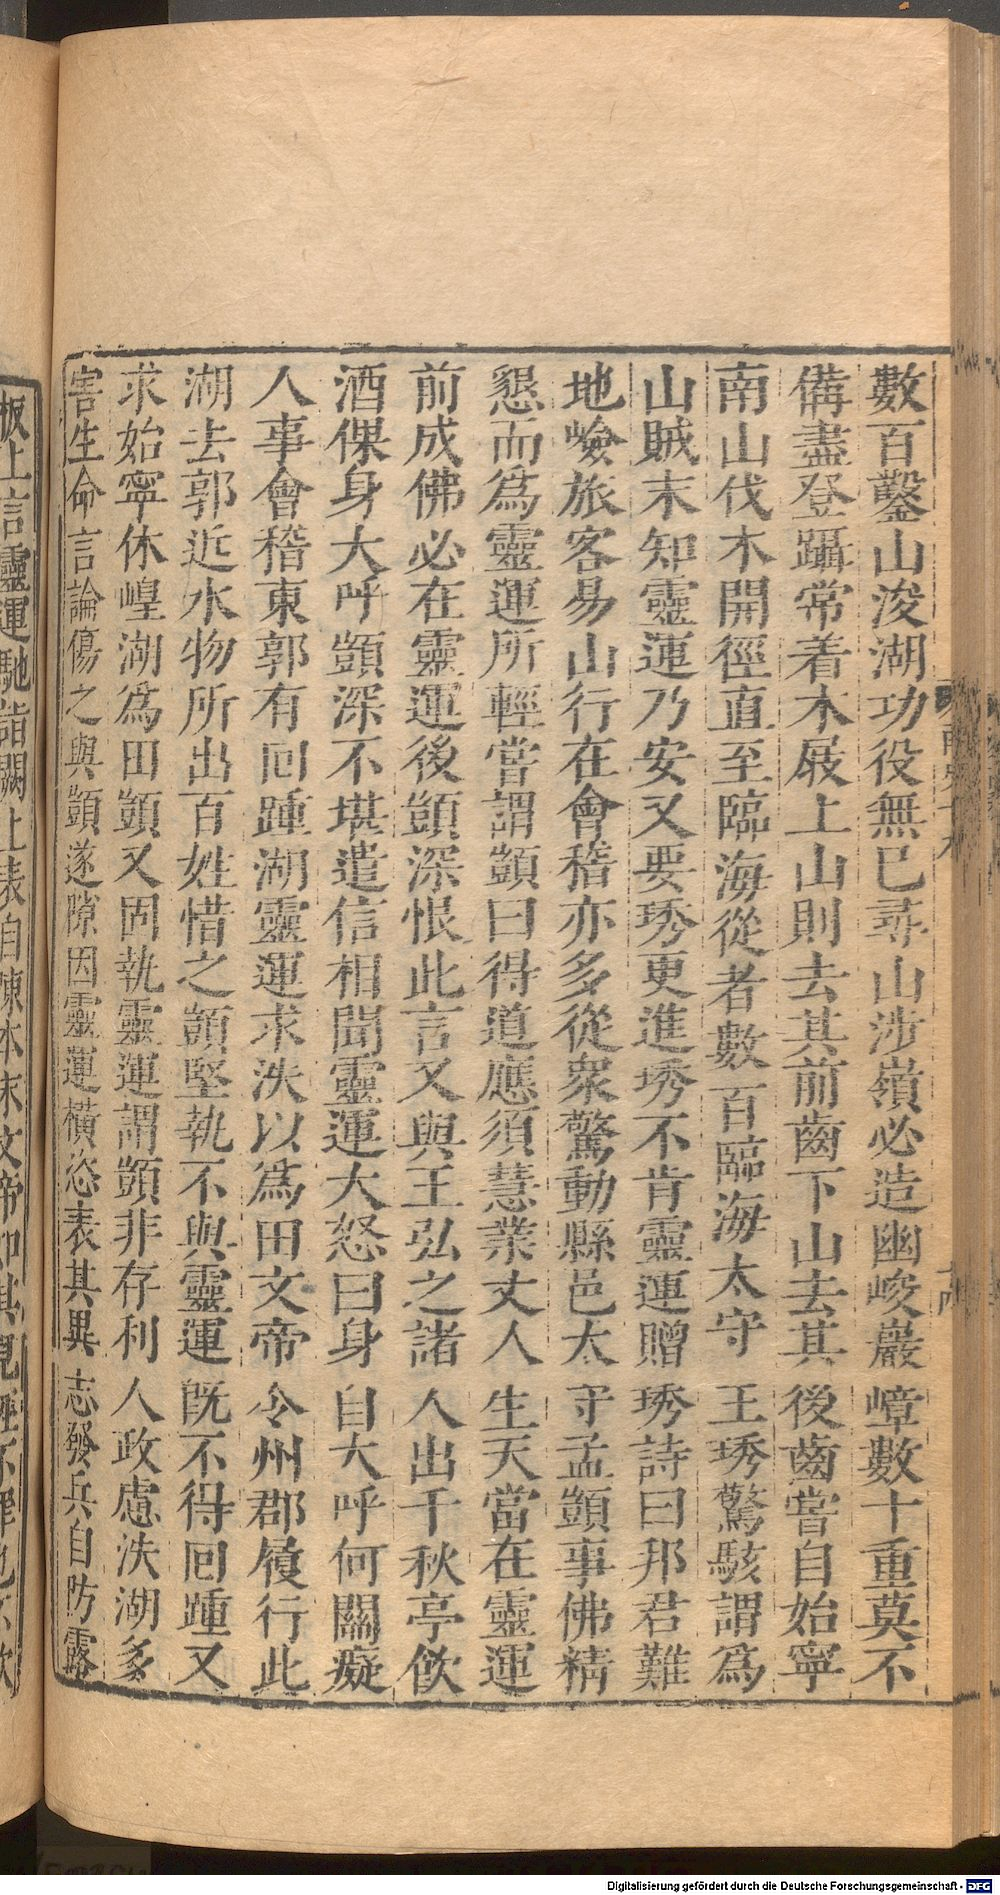 數百鑿山浚湖功役無已尋山涉嶺必造幽峻巖嶂數十重莫不
備盡登躡常着木屐上山則去其前齒下山去其後齒嘗自始寧
南山伐木開徑直至臨海從者數百臨海太守王琇驚駭謂為
山賊末知靈運乃安又要琇更進琇不肯靈運贈琇詩曰邦君難
地嶮旅客易山行在會稽亦多從衆驚動縣邑太守孟顗事佛精
懇而爲靈運所輕嘗謂顗曰得道應須慧業丈人生天當在靈運
前成佛必在靈運後顗深恨此言又與王弘之諸人出千秋亭飲
酒倮身大呼顗深不堪遣信相聞靈運大怒曰身自大呼何關癡
人事會稽東郭有回踵湖靈運求泆以爲田文帝令州郡履行此
湖去郭近水物所出百姓惜之顗堅執不與靈運既不得回踵又
求始寧休崲湖爲田顗又固執靈運謂顗非存利人政慮泆湖多
害生命言論傷之與顗遂隙因靈運橫恣表其異志發兵自防露
板上言靈運馳詣闕上表自陳本末文帝知其見誣不罪也不欲
Digitalisierung gefördert durch die Deutsche Forschungsgemeinschaft - DFG